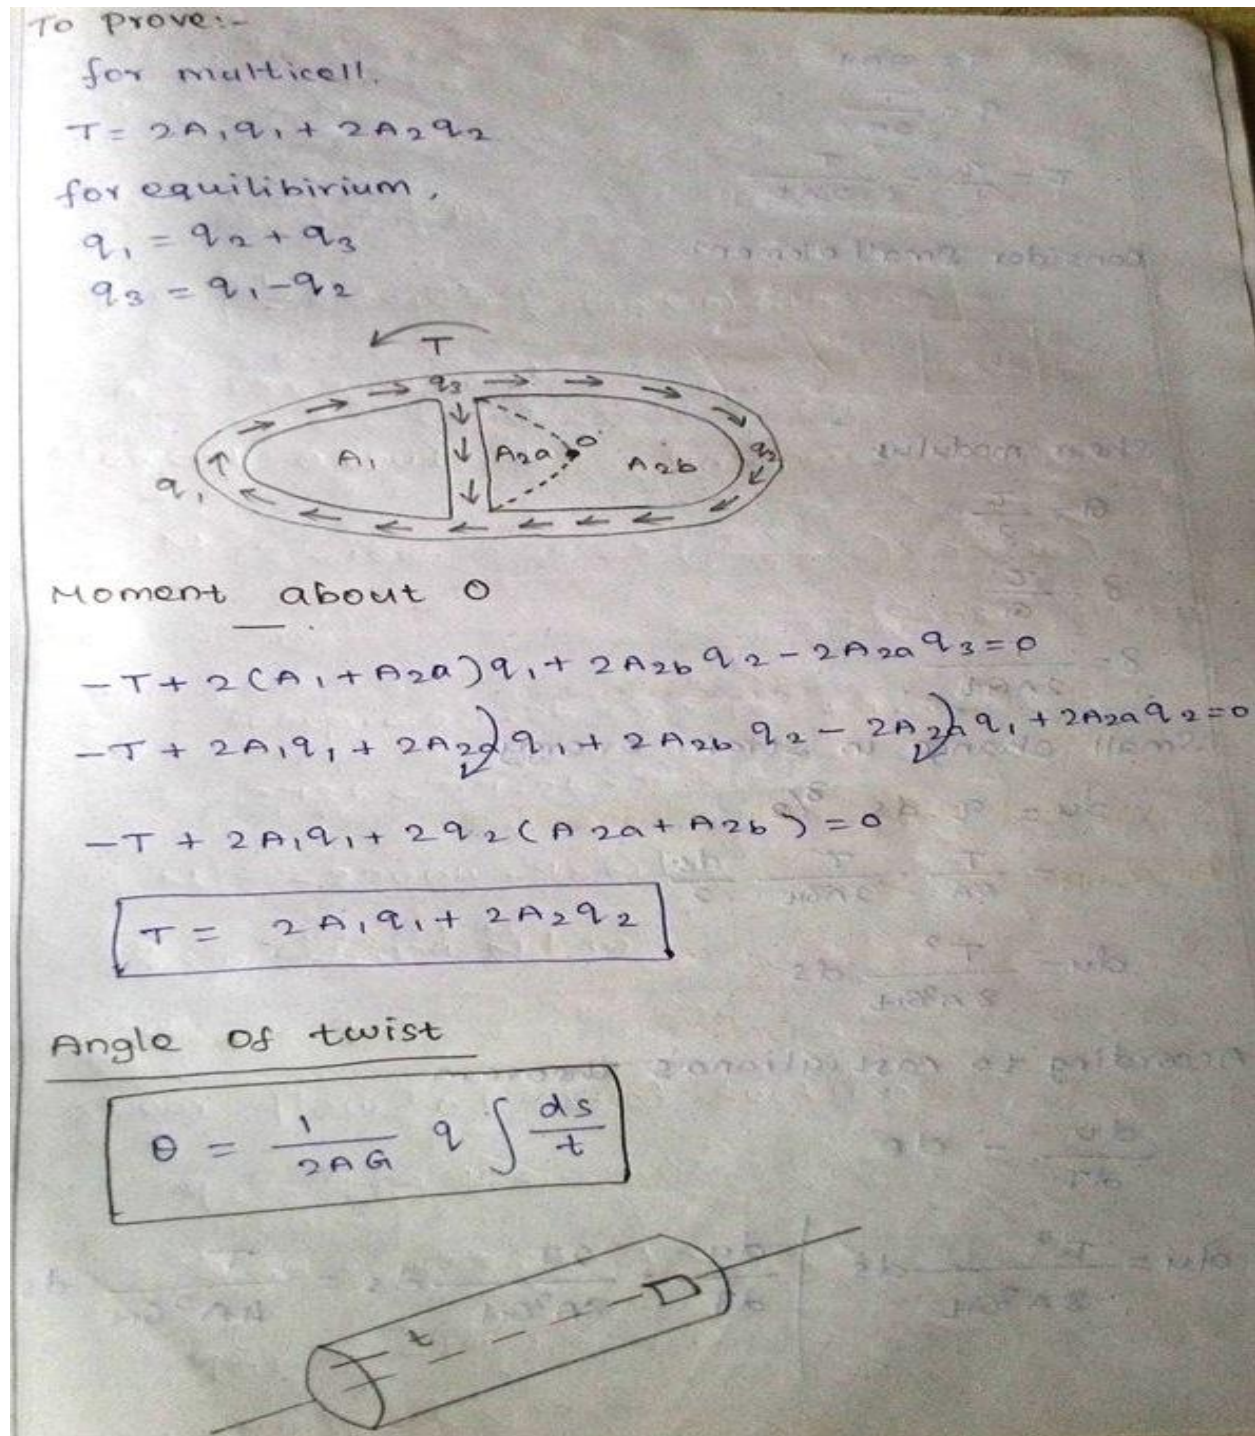 To prove:-
for multicell.
T = 2A₁q₁ + 2A₂q₂
for equilibirium,
q₁ = q₂ + q₃
q₃ = q₁ - q₂
T
q₃
A₁ A₂a O A₂b q₂
q₁
Moment about O
-T + 2(A₁ + A₂a)q₁ + 2A₂b q₂ - 2A₂a q₃ = 0
-T + 2A₁q₁ + 2A₂a q₁ + 2A₂b q₂ - 2A₂a q₁ + 2A₂a q₂ = 0
-T + 2A₁q₁ + 2q₂(A₂a + A₂b) = 0
T = 2A₁q₁ + 2A₂q₂
Angle of twist
θ = 1/2AG q ∫ ds/t
t